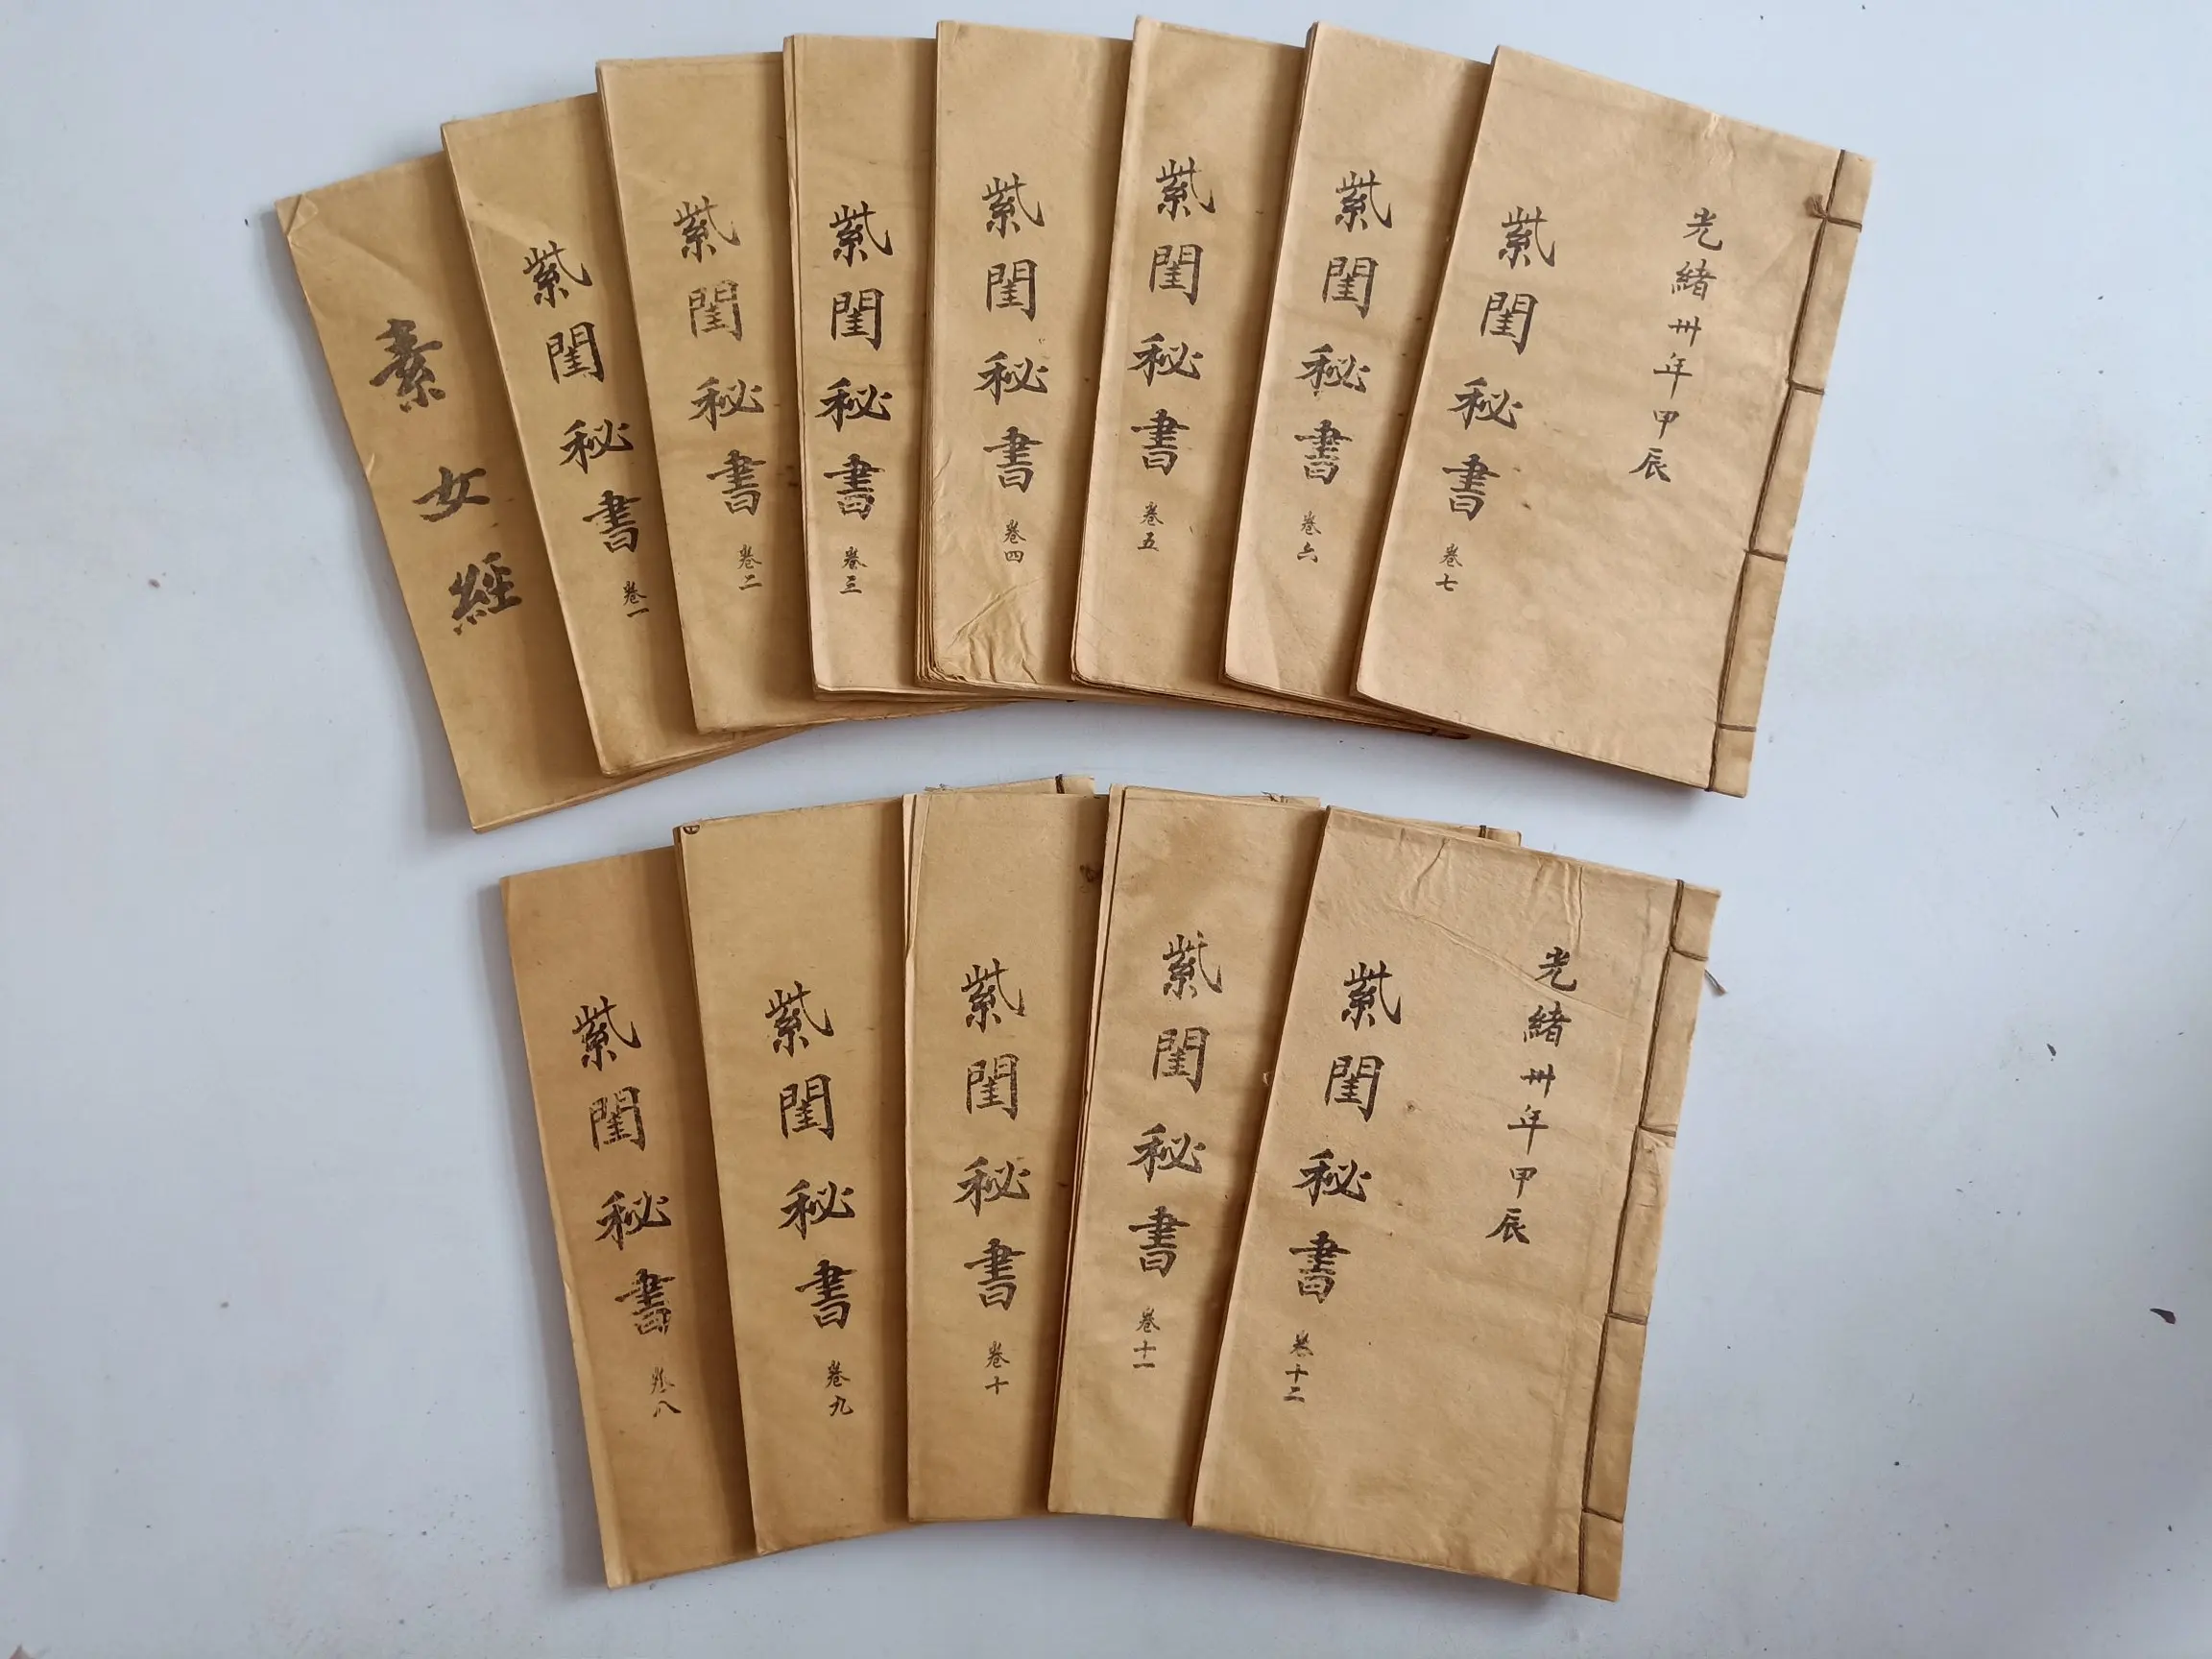 素女經
紫閨秘書 卷一
紫閨秘書 卷二
紫閨秘書 卷三
紫閨秘書 卷四
紫閨秘書 卷五
紫閨秘書 卷六
光緒卅年甲辰
紫閨秘書 卷七
紫閨秘書 卷八
紫閨秘書 卷九
紫閨秘書 卷十
紫閨秘書 卷十一
光緒卅年甲辰
紫閨秘書 卷十二